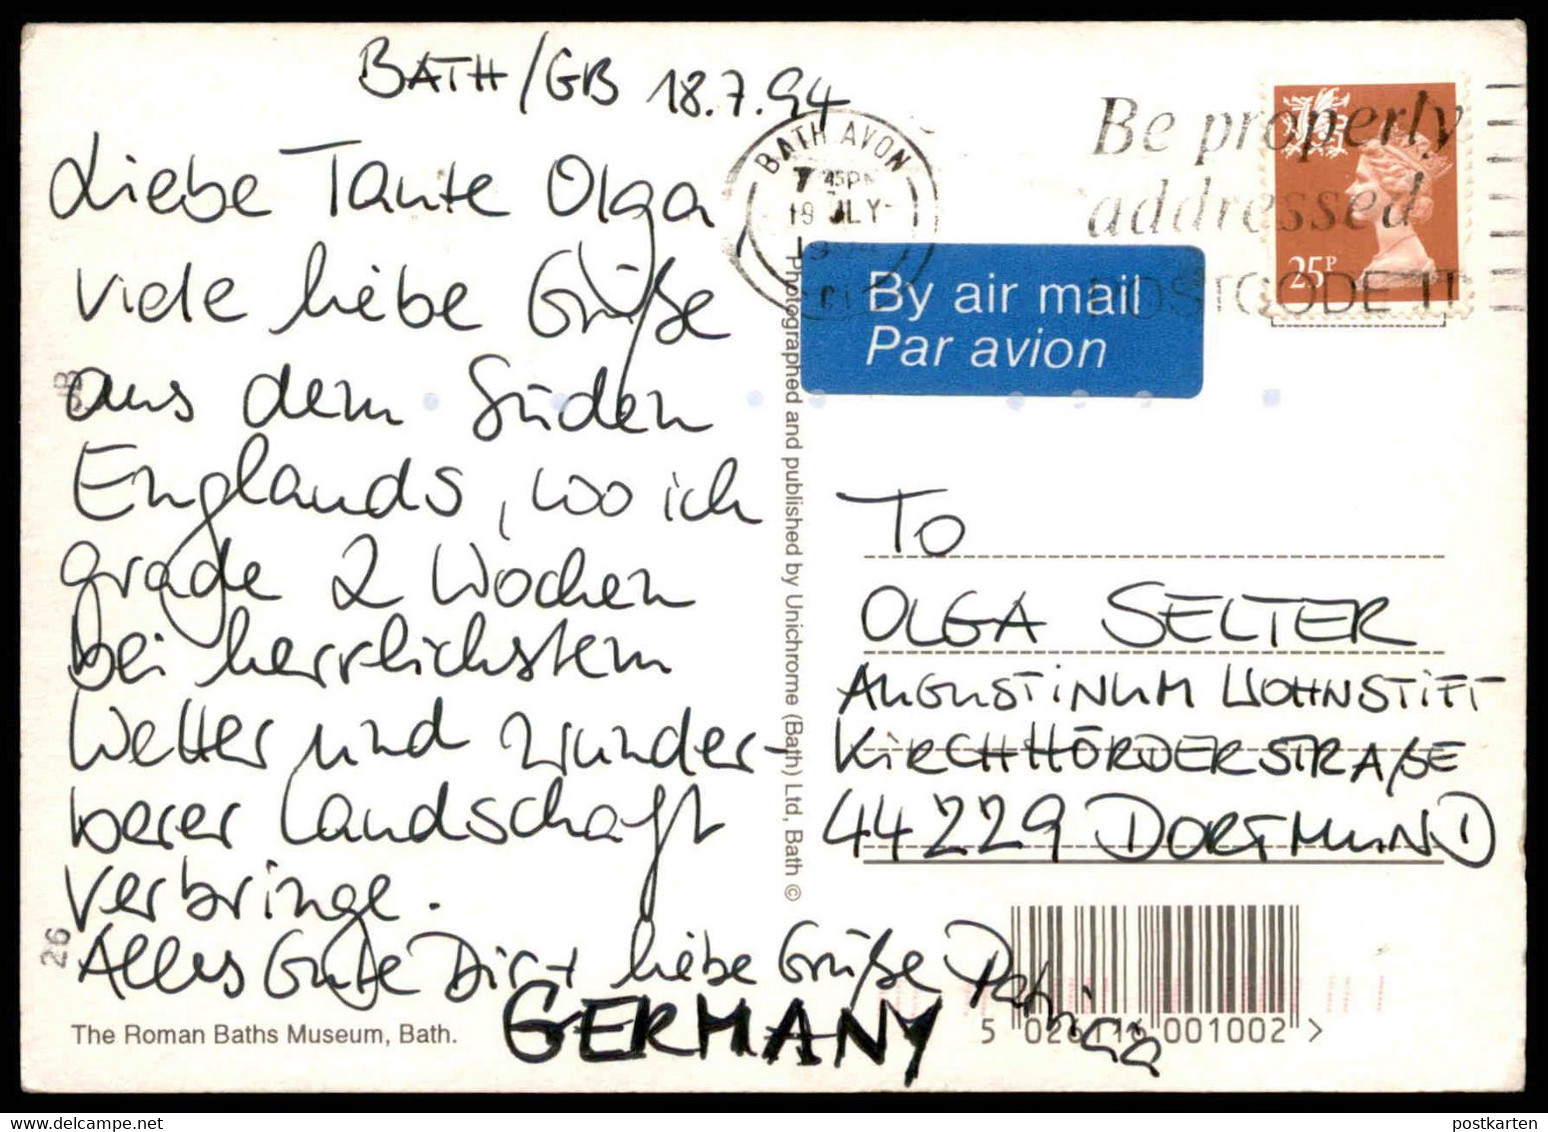 BATH/GB 18.7.94
Liebe Tante Olga
viele liebe Grüße
aus dem Süden
Englands, wo ich
grade 2 Wochen
bei herrlichstem
Wetter und wunder-
barer Landschaft
verbringe.
Alles Gute Dir + liebe Grüße Patricia
The Roman Baths Museum, Bath.
GERMANY
Photographed and published by Unichrome (Bath) Ltd, Bath ©
BATH AVON
7 45PM
19 JLY
By air mail
Par avion
Be properly
addressed
POSTCODE IT
25P
To
OLGA SELTER
AUGUSTINUM WOHNSTIFT
KIRCHHÖRDERSTRAßE
44229 DORTMUND
001002 >
26
postkarten